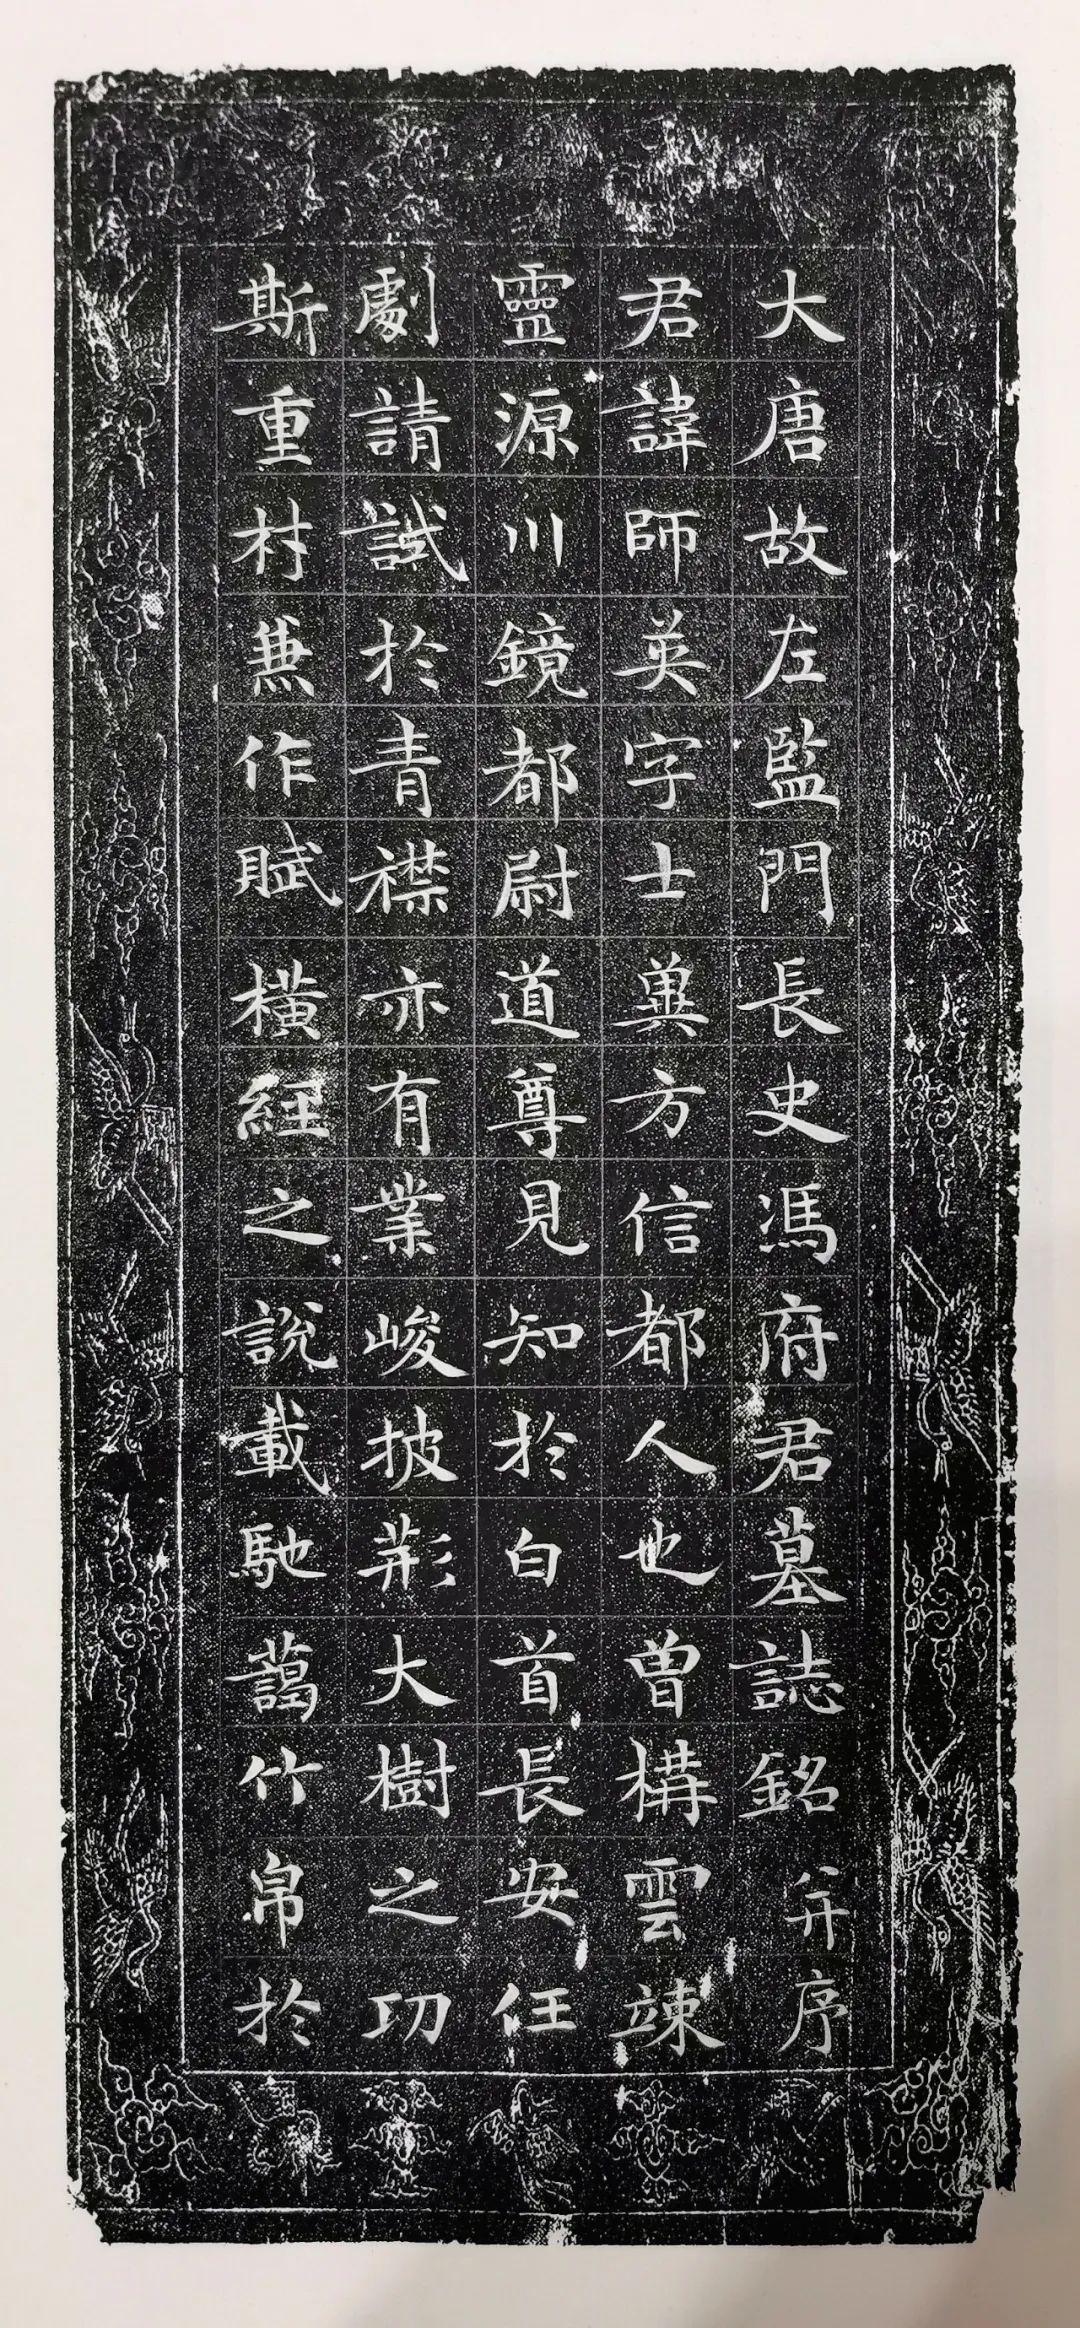 大唐故左監門長史馮府君墓誌銘并序
君諱師英字士㢲方信都人也曾構雲竦
靈源川鏡都尉道尊見知於白首長安任
劇請試於青襟亦有業峻披荊大樹之功
斯重村兼作賦橫經之說載馳藹竹帛於